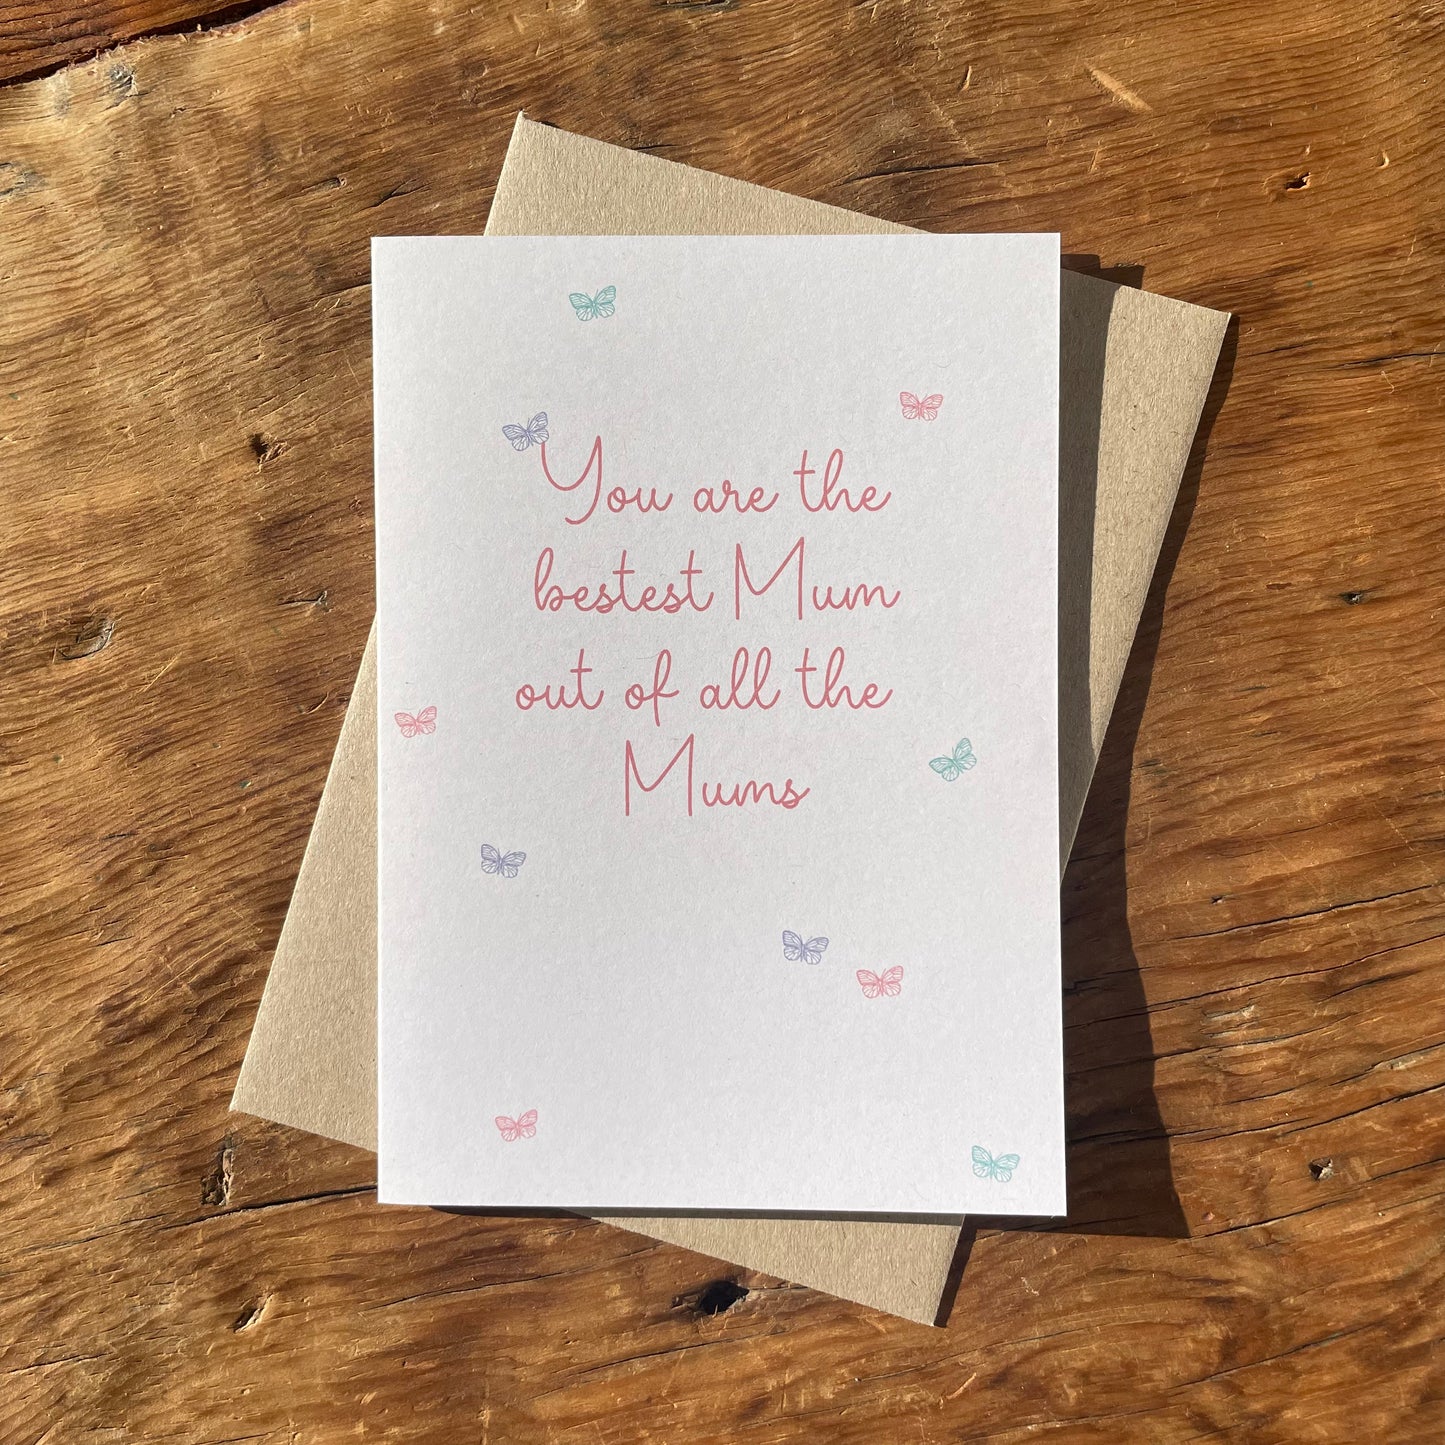 You are the
bestest Mum
out of all the
Mums